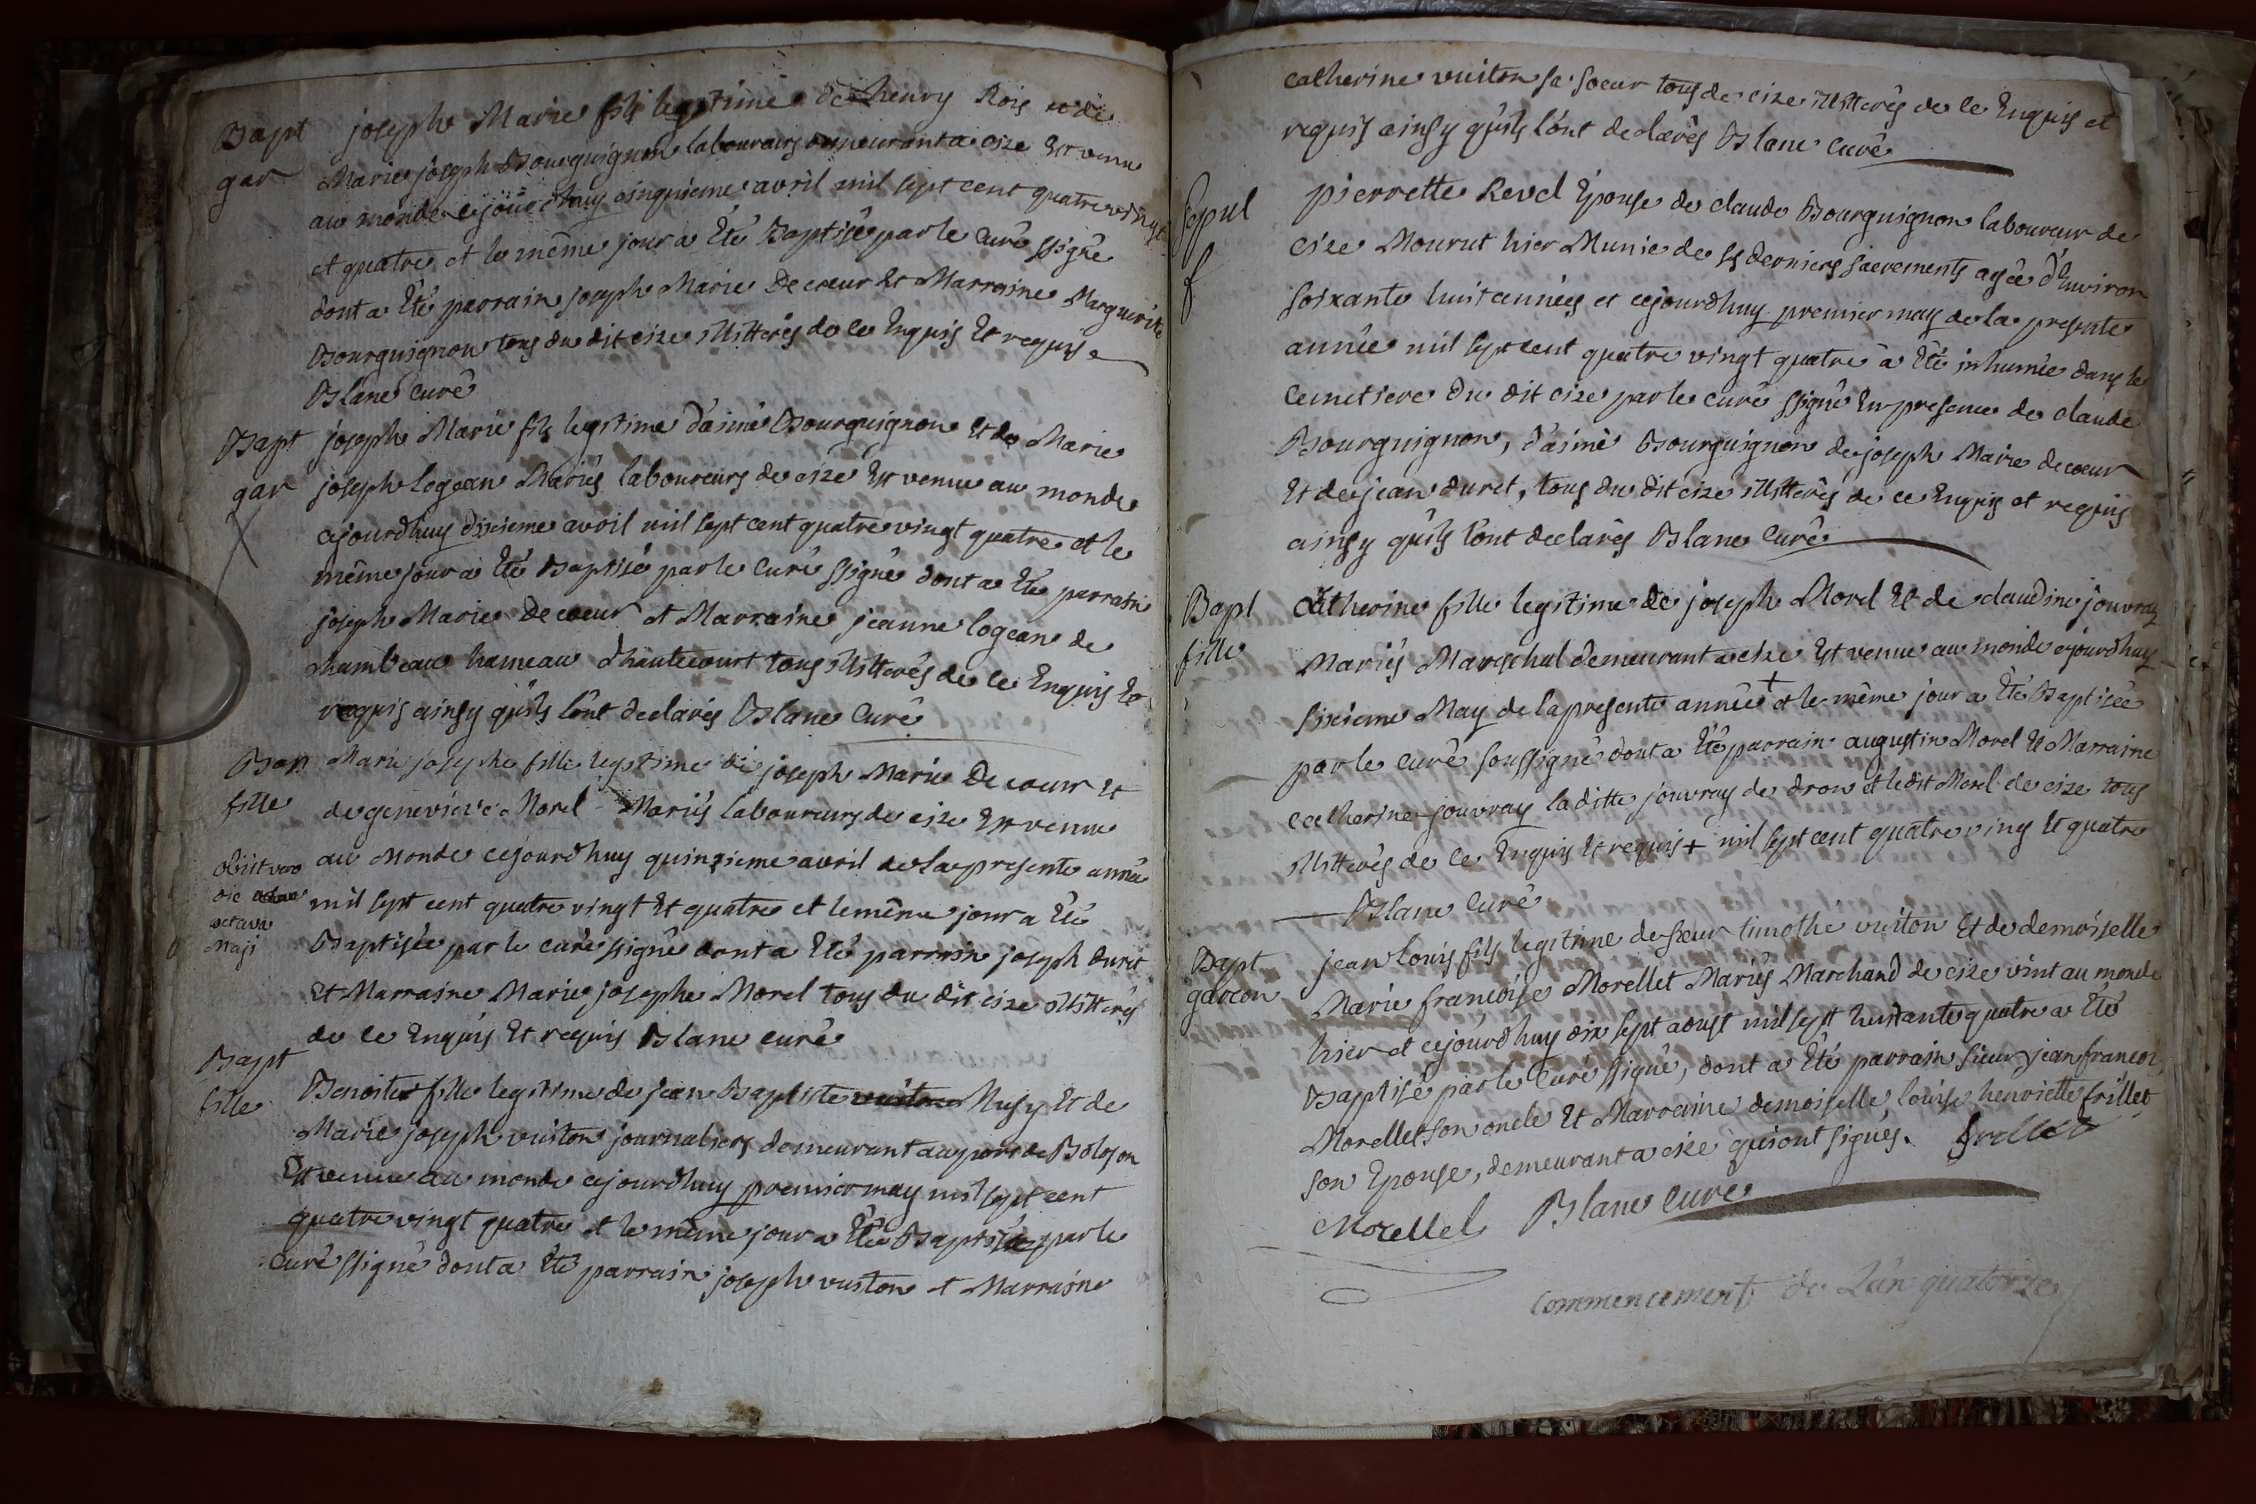 Bapt
gar
joseph Marie fils legitime de henry Rois et de
Marie joseph Bourguignon laboureurs demeurant a cize Est venu
au monde cejourdhuy cinquieme avril mil sept cent quatre vingt
et quatre et le même jour a Eté Baptisé par le curé ssigné
dont a Eté parrain joseph Marie Decœur Et Marraine Marguerite
Bourguignon tous du dit cize illitterés de ce Enquis Et requis
Blanc curé
Bapt
gar
joseph Marie fils legitime d'aimé Bourguignon Et de Marie
joseph logean Mariés laboureurs de cize Est venu au monde
cejourdhuy dixieme avril mil sept cent quatre vingt quatre et le
même jour a Eté Baptisé par le curé ssigné dont a Eté parrain
joseph Marie Decœur et Marraine jeanne logean de
chambeau hameau d'hautecourt tous illitterés de ce Enquis Et
requis ainsy qu'ils l'ont declarés Blanc Curé
Bap
fille
Marie josephe fille legitime de joseph Marie Decœur Et
de genevieve Morel Mariés laboureurs de cize Est venue
au Monde cejourdhuy quinzieme avril de la presente année
mil sept cent quatre vingt Et quatre et le même jour a Eté
Baptisée par le curé ssigné dont a Eté parrain joseph duret
Et Marraine Marie josephe Morel tous du dit cize illitterés
de ce Enquis Et requis Blanc curé
obiit vero
die
octava
maji
Bapt
fille
Benoite fille legitime de jean Baptiste Musy Et de
Marie joseph vuiton journaliers demeurant au port de Bolozon
Est venue au monde cejourdhuy premier may mil sept cent
quatre vingt quatre et le même jour a Eté Baptisée par le
curé ssigné dont a Eté parrain joseph vuiton et Marraine
catherine vuiton sa soeur tous de cize illitterés de ce Enquis et
requis ainsy qu'ils l'ont declarés Blanc curé
Sepul
f
pierrette Revel Epouse de claude Bourguignon laboureur de
cize Mourut hier Munie de ss derniers sacrements agée d'Environ
soixante huit années et cejourdhuy premier may de la presente
année mil sept cent quatre vingt quatre a Eté inhumée dans le
cemetiere du dit cize par le curé ssigné En presence de claude
Bourguignon, d'aimé Bourguignon de joseph Marie decœur
Et de jean duret, tous du dit cize illitterés de ce Enquis et requis
ainsy qu'ils l'ont declarés Blanc Curé
Bapt
fille
Catherine fille legitime de joseph Morel Et de claudine jouvray
Mariés Mareschal demeurant a cize Est venue au monde cejourdhuy
sixieme May de la presente année + et le même jour a Eté Baptisée
par le curé soussigné dont a Eté parrain augustin Morel Et Marraine
catherine jouvray la ditte jouvray de drom et le dit Morel de cize tous
illitterés de ce Enquis Et requis + mil sept cent quatre ving Et quatre
Blanc Curé
Bapt
garcon
jean louis fils legitime de sieur timothé vuiton Et de demoiselle
Marie francoise Morellet Mariés Marchand de cize vint au monde
hier et cejourdhuy dix sept aoust mil sept huitante quatre a Eté
Baptisé par le curé ssigné, dont a Eté parrain sieur jean francoi
Morellet son oncle Et Marraine demoiselle louise henriette frillet
son Epouse, demeurant a cize qui ont signés. frillet
Morellet Blanc curé
Commencement de L'an quatorze